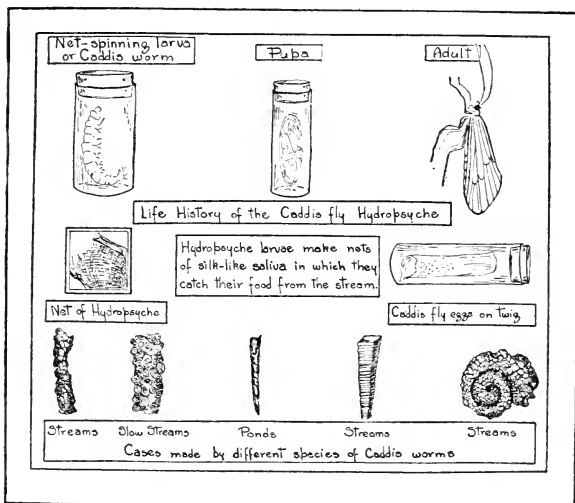 Net-spinning larva
or Caddis worm
Pupa
Adult
Life History of the Caddis fly Hydropsyche
Hydropsyche larvae make nets
of silk-like saliva in which they
catch their food from the stream.
Net of Hydropsyche
Caddis fly eggs on twig
Streams
Slow Streams
Ponds
Streams
Streams
Cases made by different species of Caddis worms